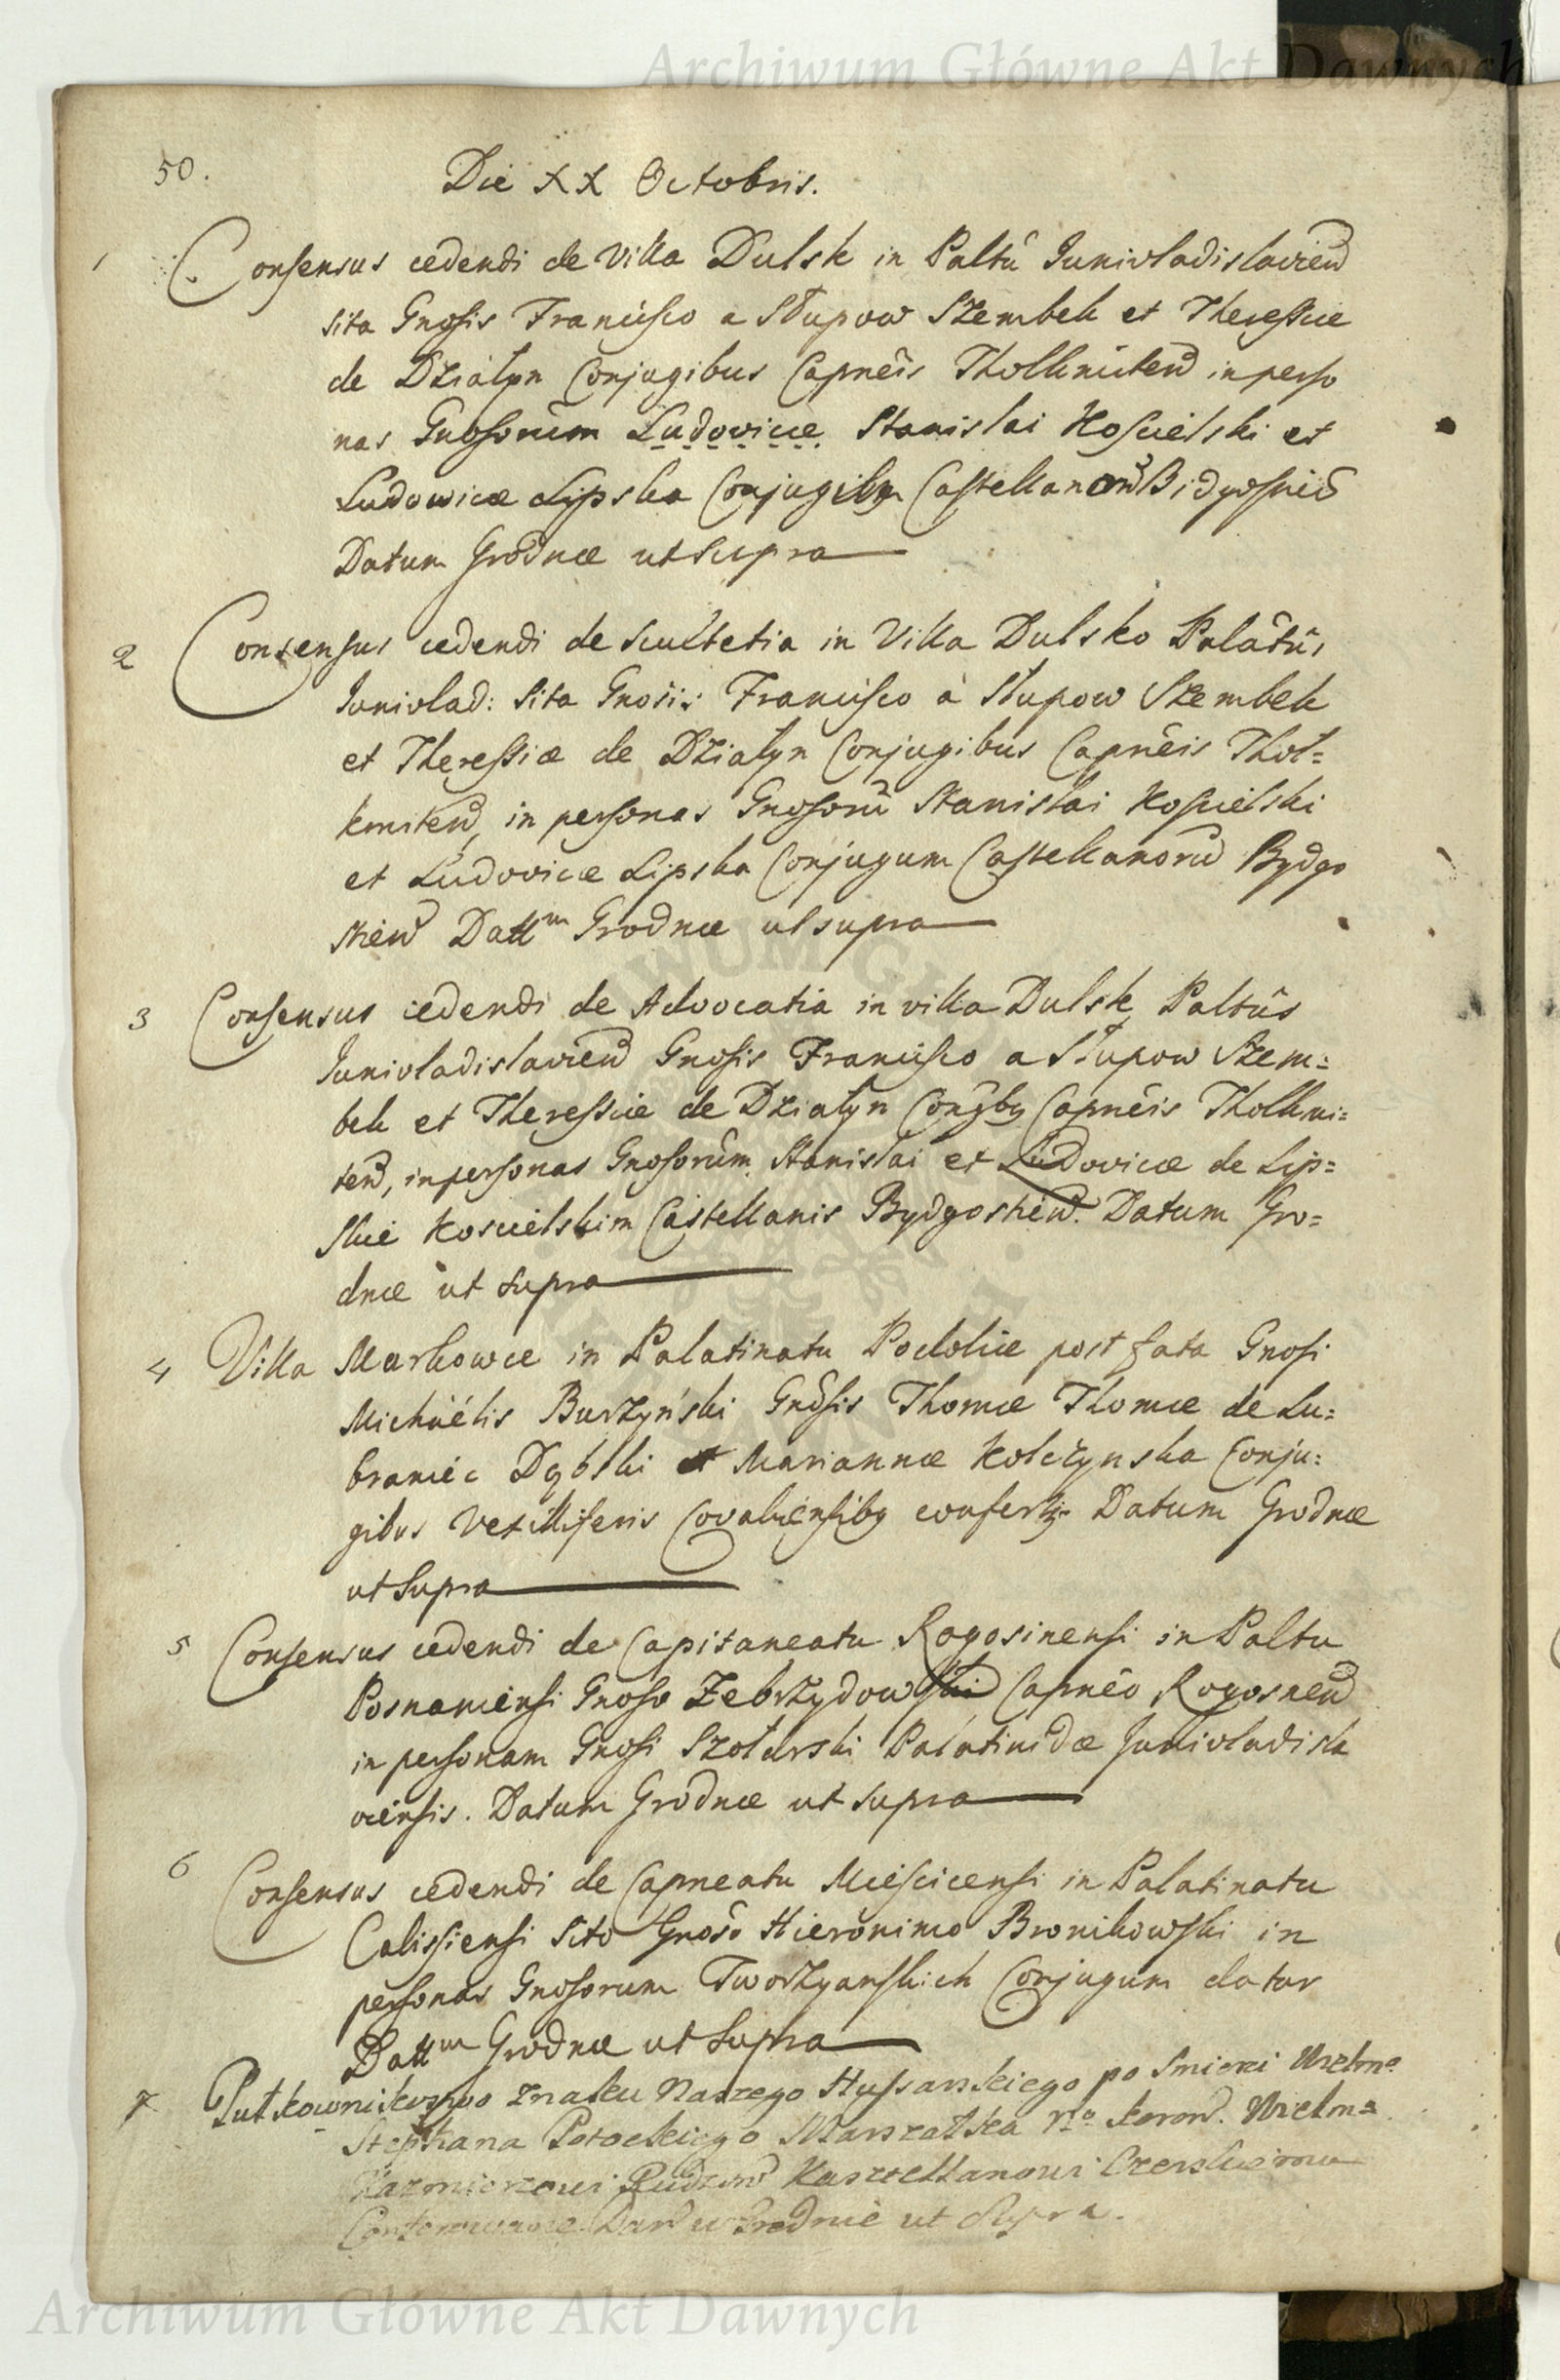 Archiwum Główne Akt Dawnych
50.
Die XX Octobris.
1 Consensus cedendi de Villa Dulsk in Paltũ Junivladislavien̄
sita Gnosis Francisco a Słupow Szembek et Theressiæ
de Działyn Conjugibus Capnēis Tholkmiten̄ in perso
nas Gnosorum Ludovicæ Stanislai Koscielski et
Ludowicæ Lipska Conjugibus Castellanorũ Bidgosnien̄
Datum Grodnæ ut supra
2 Consensus cedendi de Scultetia in Villa Dulsko Palãtũs
Junivlad: sita Gnosis Francisco à Słupow Szembek
et Theressiæ de Działyn Conjugibus Capnēis Thol=
kmiten̄, in personas Gnosorũ Stanislai Koscielski
et Ludovicæ Lipska Conjugum Castellanorũ Bydgo
stien̄ Dattm Grodnæ ut supra
3 Consensus cedendi de Advocatia in villa Dulsk Paltũs
Junivladislavien̄ Gnosis Francisco a Słupow Szem=
bek et Theressiæ de Działyn Conjgby Capnēis Tholkmi=
ten̄, in personas Gnosorũm Stanislai et Ludovicæ de Lip=
skie Koscielskim Castellanis Bydgostien̄. Datum Gro=
dnæ ut supra
4 Villa Markowce in Palatinatu Podoliæ post fata Gnosi
Michaëlis Burzyński Gnõsis Thomæ Thomæ de Lu=
braniec Dąbski et Mariannæ Kolczynska Conju=
gibus Vexilliferis Covaliensiby confertr. Datum Grodnæ
ut Supra
5 Consensus cedendi de Capitaneatu Rogosinensi in Paltu
Posnaniensi Gnoso Zebrzydowski Capnēo Rogosnen̄
in personam Gnosi Szołdrski Palatinidæ Junivladisla
viensis. Datum Grodnæ ut supra
6 Consensus cedendi de Capneatu Miescicensi in Palatinatu
Calissiensi Sito Gnoso Hieronimo Bronikowski in
personas Gnosorum Tworzyanskich Conjugum datur
Dattm Grodnæ ut Supra
7 Pułkownikostwo znaku Naszego Hussarskiego po Smierci Wielmo
Stephana Potockiego Marszałka No koron̄. Wielm=
Kazmierzowi Rudzin̄ Kasztellanowi Czerskiemu
Conferowane Dan̄ w Grodnie ut Supra.
Archiwum Główne Akt Dawnych